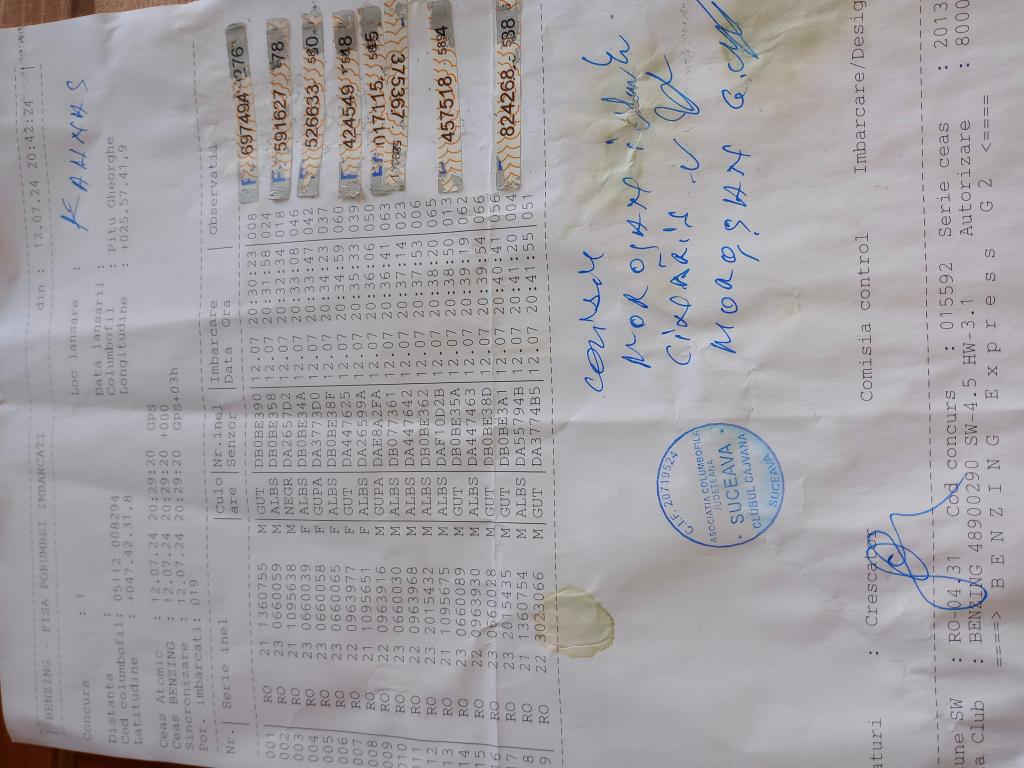 BENZING - FISA PORUMBEI IMBARCATI din : 12.07.24 20:42:24
Concurs : 1 Loc lansare : KAUNAS
Distanta : Data lansarii :
Cod columbofil: 05112 008294 Columbofil : Pitu Gheorghe
Latitudine : +047.42.31,8 Longitudine : +025.57.41,9
Ceas Atomic : 12.07.24 20:29:20 GPS
Ceas BENZING : 12.07.24 20:29:20 +000
Sincronizare : 12.07.24 20:29:20 GPS+03h
Por. imbarcati: 019
Nr. | Serie inel |Culo|Nr.inel |Imbarcare | Observatii
|are |Senzor |Data Ora
001 RO 21 1360755 M GUT DB0BE390 12.07 20:30:23 008
002 RO 23 0660059 M ALBS DB0BE358 12.07 20:31:58 024
003 RO 21 1095638 M NEGR DA2657D2 12.07 20:32:34 018
004 RO 23 0660039 F ALBS DB0BE34A 12.07 20:33:08 046
005 RO 23 0660058 F GUPA DA3773D0 12.07 20:33:47 042
006 RO 23 0660065 F ALBS DB0BE38F 12.07 037
007 RO 22 0963977 F GUT DA447625 12.07 20:34:59 060
008 RO 21 1095651 F ALBS DA26599A 12.07 20:35:33 039
009 RO 22 0963916 M GUPA DAEBA2EA 12.07 20:36:06 050
010 RO 23 0660030 M ALBS DB077361 12.07 20:36:41 063
011 RO 22 0963968 M ALBS DA447642 12.07 20:37:14 023
12 RO 23 2015432 M ALBS DB0BE362 12.07 20:37:53 006
13 RO 21 1095675 M ALBS DAF10D2B 12.07 20:38:20 065
14 RO 23 0660089 M GUT DB0BE35A 12.07 20:38:50 013
15 RO 22 0963930 M ALBS DA447463 12.07 20:39:19 062
16 RO 23 0660028 M GUT DB0BE38D 12.07 20:39:54 066
RO 23 2015435 M GUT DB0BE3A1 12.07 20:40:41 056
8 RO 21 1360754 M ALBS DA55794B 12.07 20:41:20 004
9 RO 22 3023066 M GUT DA3774B5 12.07 20:41:55 051
591627
526633
424549
017115
37536
457518
824268
MOROȘAN
MOROȘAN G.
C.I.F. 20719524
ASOCIATIA COLUMBOFILA
JUDETEANA
SUCEAVA
CLUBUL CAJVANA
SUCEAVA
aturi : Crescator Comisia control Imbarcare/Design
une SW : RO-04.31 Cod concurs : 015592 Serie ceas : 2013
a Club : BENZING 48900290 SW-4.5 HW-3.1 Autorizare : 8000
====> B E N Z I N G E x p r e s s G 2 <====